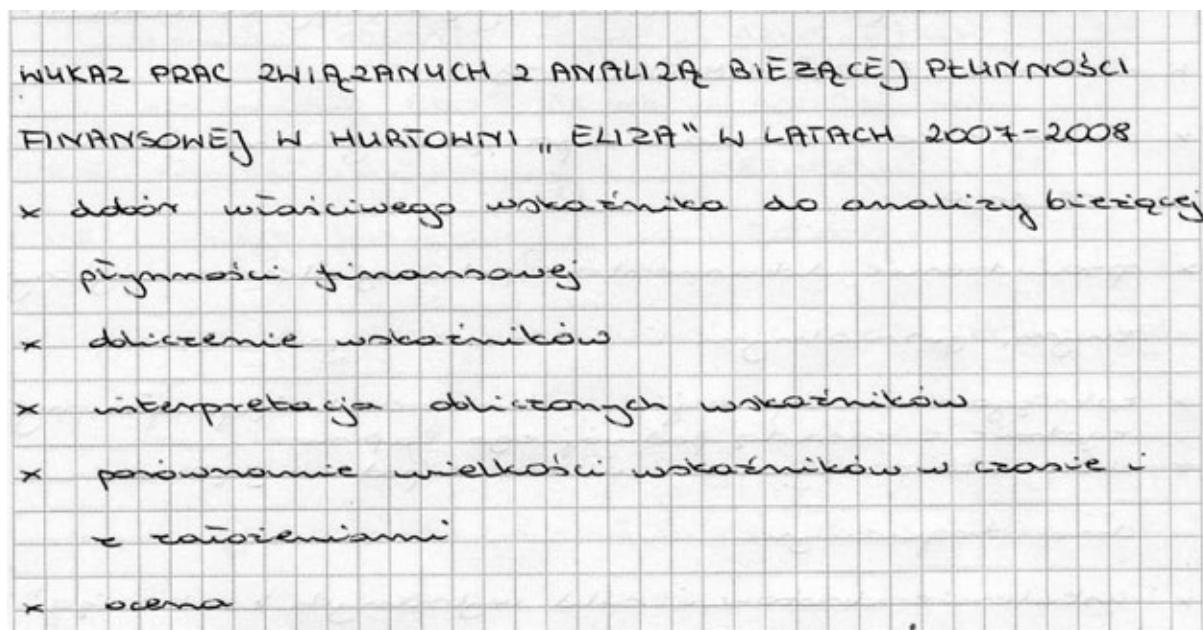 WYKAZ PRAC ZWIĄZANYCH Z ANALIZĄ BIEŻĄCEJ PŁYNNOŚCI
FINANSOWEJ W HURTOWNI „ELIZA" W LATACH 2007-2008
x dobór właściwego wskaźnika do analizy bieżącej
płynności finansowej
x obliczenie wskaźników
x interpretacja obliczonych wskaźników
x porównanie wielkości wskaźników w czasie i
z założeniami
x ocena